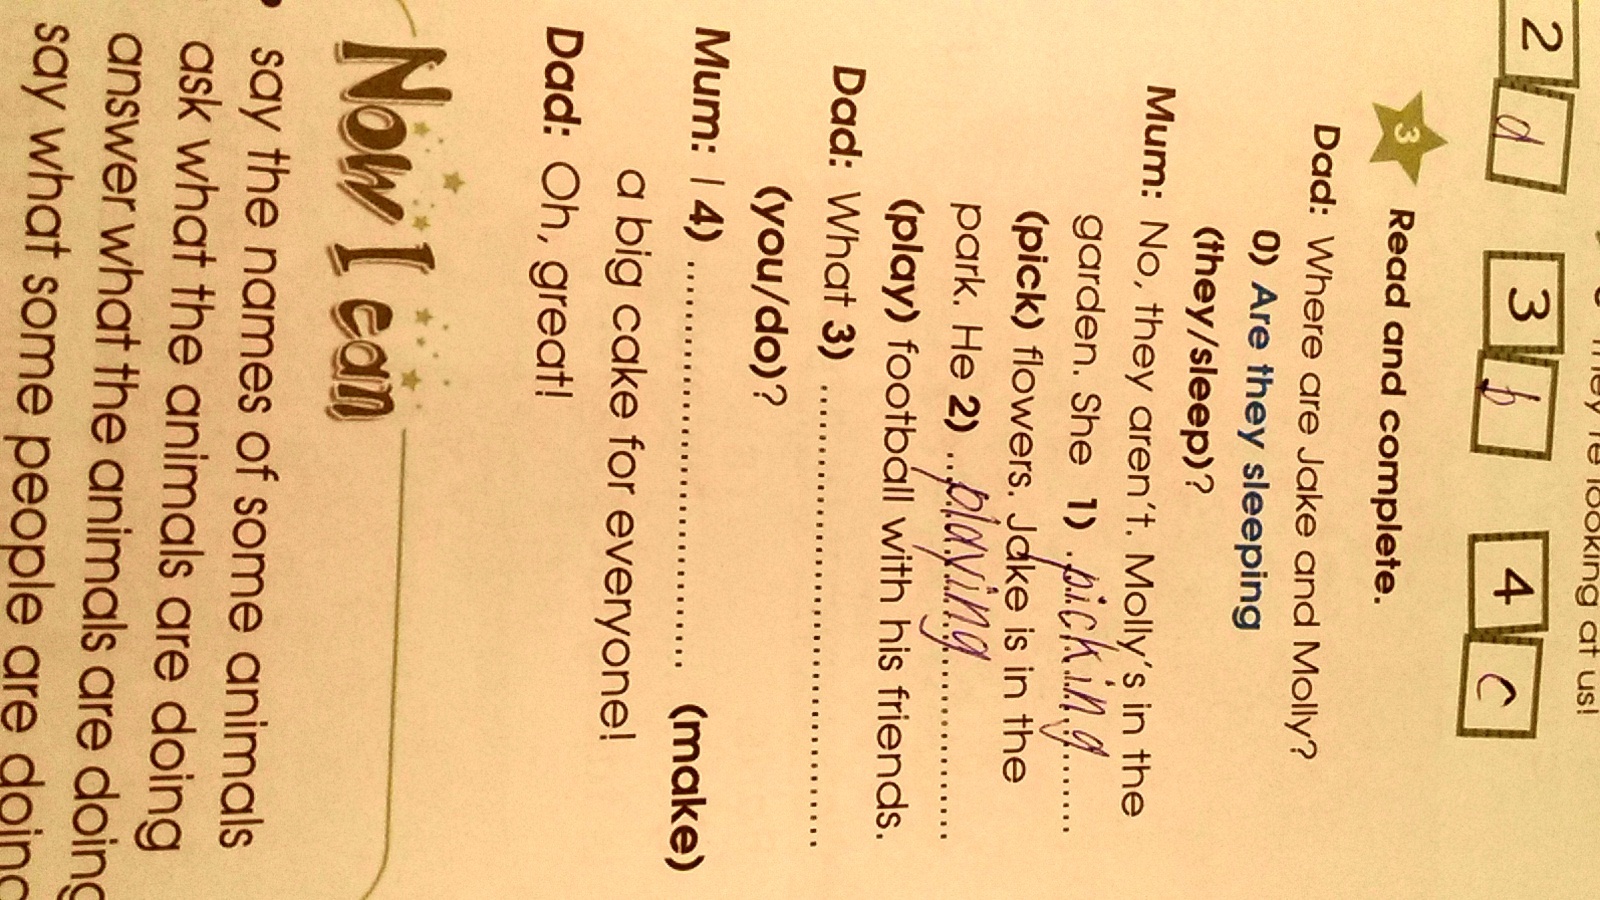 They're looking at us!
2 d 3 b 4 c
3 Read and complete.
Dad: Where are Jake and Molly?
0) Are they sleeping
(they/sleep)?
Mum: No, they aren't. Molly's in the
garden. She 1) picking
(pick) flowers. Jake is in the
park. He 2) playing
(play) football with his friends.
Dad: What 3) ..............................
(you/do)?
Mum: I 4) .............................. (make)
a big cake for everyone!
Dad: Oh, great!
Now I can
• say the names of some animals
ask what the animals are doing
answer what the animals are doing
say what some people are doing